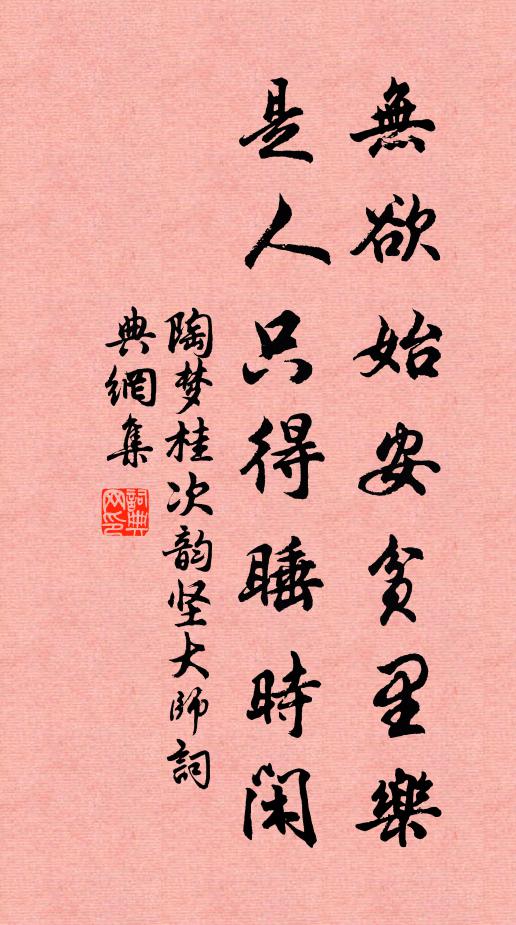 無欲始安貧里樂
是人只得睡時閑
陶梦桂次韵坚大师詞
典網集
詞典
网印